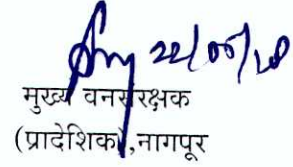 22/05/20
मुख्य वनसंरक्षक
(प्रादेशिक),नागपूर